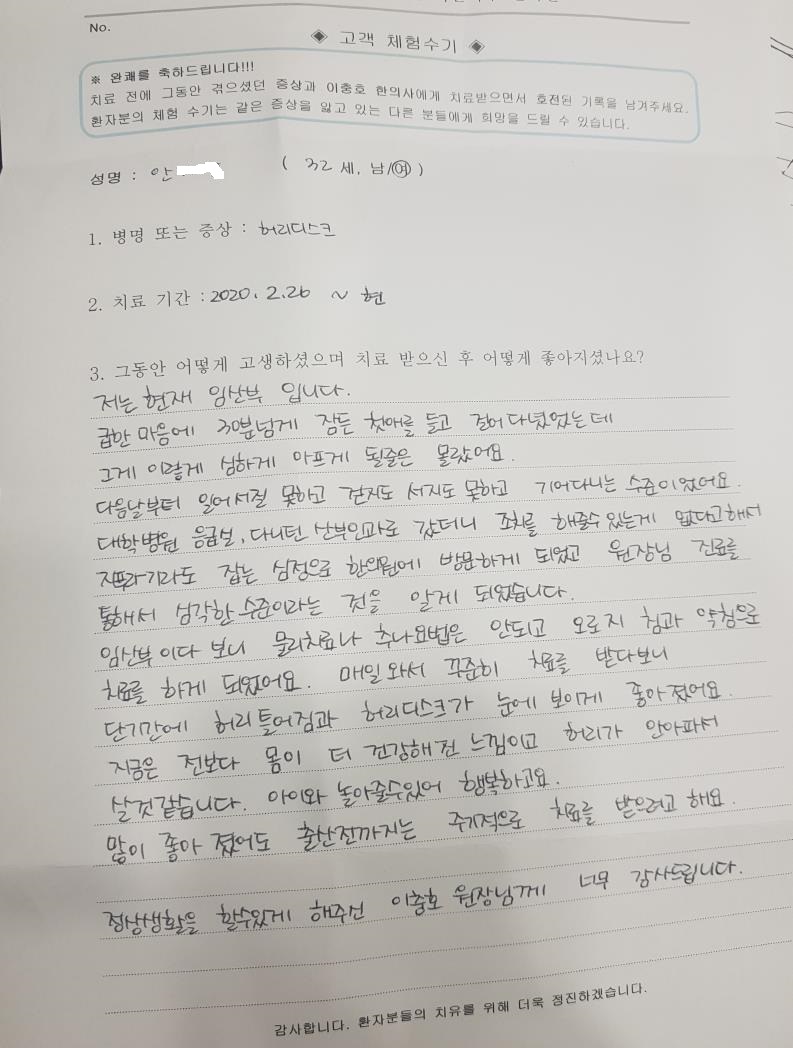 No.
◈ 고객 체험수기 ◈
※ 완쾌를 축하드립니다!!!
치료 전에 그동안 겪으셨던 증상과 이충호 한의사에게 치료받으면서 호전된 기록을 남겨주세요.
환자분의 체험 수기는 같은 증상을 앓고 있는 다른 분들에게 희망을 드릴 수 있습니다.
성명 : 안 ( 32 세, 남/여 )
1. 병명 또는 증상 : 허리디스크
2. 치료 기간 : 2020. 2.26 ~ 현
3. 그동안 어떻게 고생하셨으며 치료 받으신 후 어떻게 좋아지셨나요?
저는 현재 임산부 입니다.
급한 마음에 30분넘게 잠든 첫애를 들고 걸어다녔었는데
그게 이렇게 심하게 아프게 될줄은 몰랐어요.
다음날부터 일어서질 못하고 걷지도 서지도 못하고 기어다니는 수준이었어요.
대학병원 응급실, 다니던 산부인과로 갔더니 조치를 해줄수 있는게 없다고해서
지푸라기라도 잡는 심정으로 한의원에 방문하게 되었고 원장님 진료를
통해서 심각한 수준이라는 것을 알게 되었습니다.
임산부이다 보니 물리치료나 추나요법은 안되고 오로지 침과 약침으로
치료를 하게 되었어요. 매일 와서 꾸준히 치료를 받다보니
단기간에 허리틀어짐과 허리디스크가 눈에 보이게 좋아졌어요.
지금은 전보다 몸이 더 건강해진 느낌이고 허리가 안아파서
살것같습니다. 아이와 놀아줄수있어 행복하고요.
많이 좋아졌어도 출산전까지는 주기적으로 치료를 받으려고 해요.
정상생활을 할수있게 해주신 이충호 원장님께 너무 감사드립니다.
감사합니다. 환자분들의 치유를 위해 더욱 정진하겠습니다.